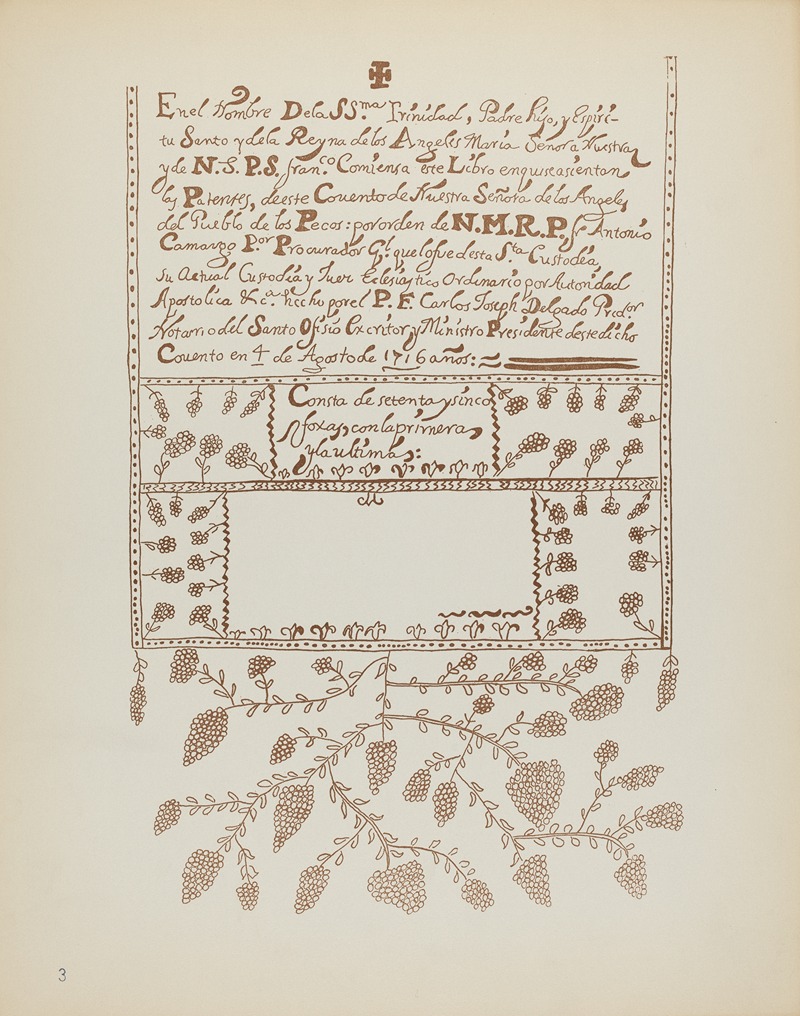 En el Nombre De la SS.ma Trinidad, Padre hijo, y Espiri-
tu Santo y de la Reyna de los Angeles Maria Señora Nuestra
y de N.S. P.S. fran.co Comiensa este Libro en quise asientan
las Patentes, de este Couento de Nuestra Señora de los Angeles
del Pueblo de los Pecos: por orden de N.M.R.P. fr Antonio
Camargo P.or Procurador G.l que lo fue desta S.ta Custodia,
su Actual Custodia y Juez Eclesiastico Ordinario por Autoridad
Apostolica &c.a hecho por el P. F. Carlos Joseph Delgado Pred.or
Notario del Santo Ofisio Excritor y Ministro Presidente deste dicho
Couento en 4 de Agosto de 1716 años:
Consta de setenta y sinco
foxas, con la primera,
y la ultima:
3